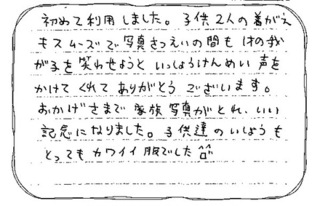 初めて利用しました。子供2人の着がえ
もスムーズで写真さつえいの間も
が子を笑わせようと いっしょうけんめい 声を
かけて くれて ありがとう ございます。
おかげさまで 家族写真がとれ、いい
記念になりました。子供達のいしょうも
とっても カワイイ 服でした